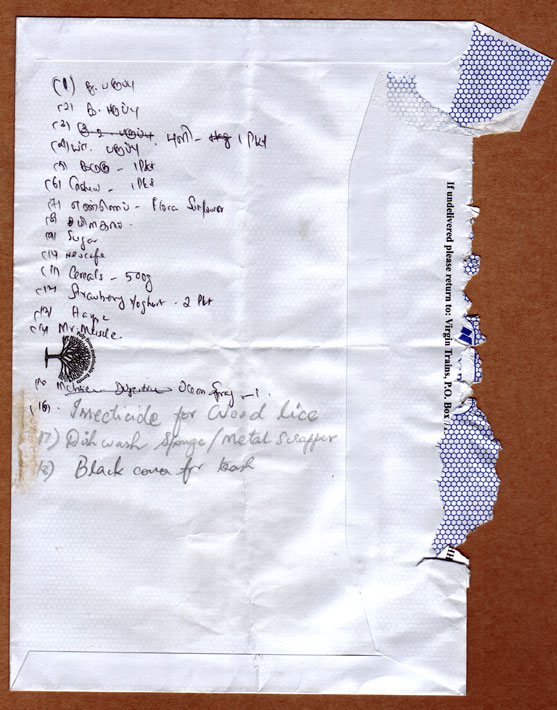 (1) து. பருப்பு
(2) க. பருப்பு
(3) புளி - 1 Pkt
(4) பருப்பு
(5) கடுகு - 1 Pkt
(6) Cashew - 1 Pkt
(7) எண்ணெய் - Flora Sunflower
(8)
(9) Sugar
(10) Nescafe
(11) Cereals - 500g
(12) Strawberry Yoghurt - 2 Pkt
(13)
(14) Mr. Muscle
Digestive Ocean Spray - 1.
(16). Insecticide for Wood lice
17) Dish wash Sponge / Metal Scrapper
18) Black cover for trash
If undelivered please return to: Virgin Trains, P.O. Box